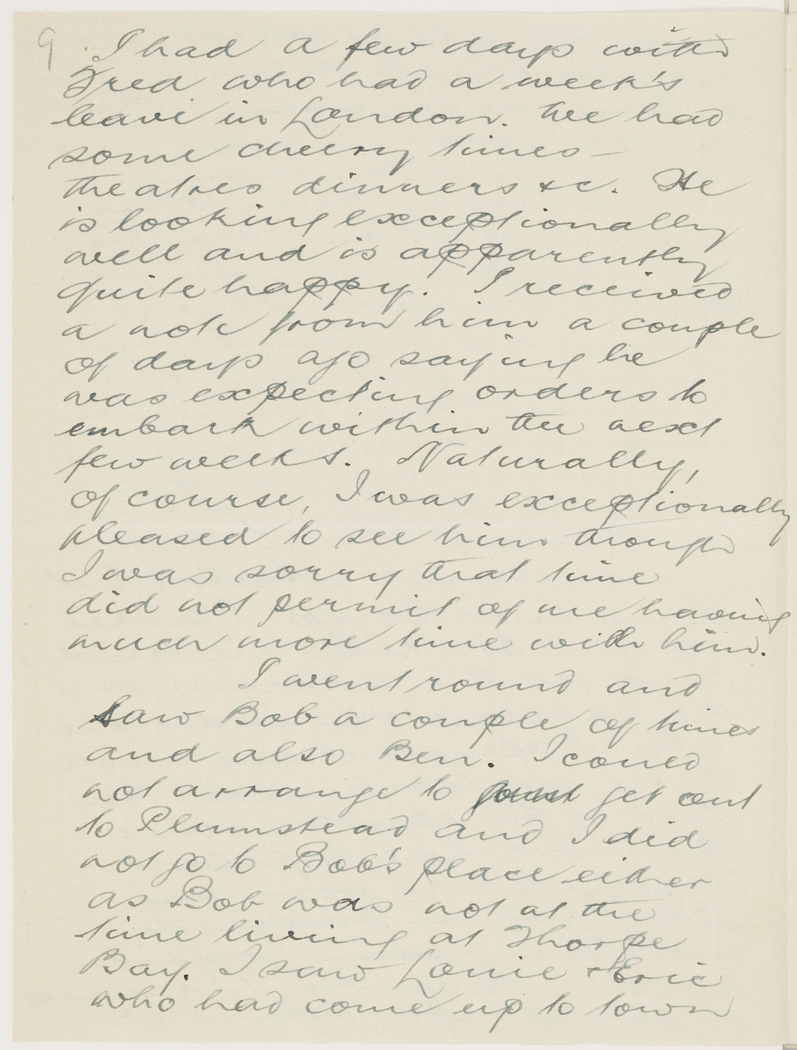 9 I had a few days with
Fred who had a week's
leave in London. We had
some cheery times —
theatres dinners &c. He
is looking exceptionally
well and is apparently
quite happy. I received
a note from him a couple
of days ago saying he
was expecting orders to
embark within the next
few weeks. Naturally,
of course, I was exceptionally
pleased to see him though
I was sorry that time
did not permit of me having
much more time with him.
I went round and
saw Bob a couple of times
and also Ben. I could
not arrange to get out
to Plumstead and I did
not go to Bob's place either
as Bob was not at the
time living at Thorpe
Bay. I saw Louie & Eric
who had come up to town